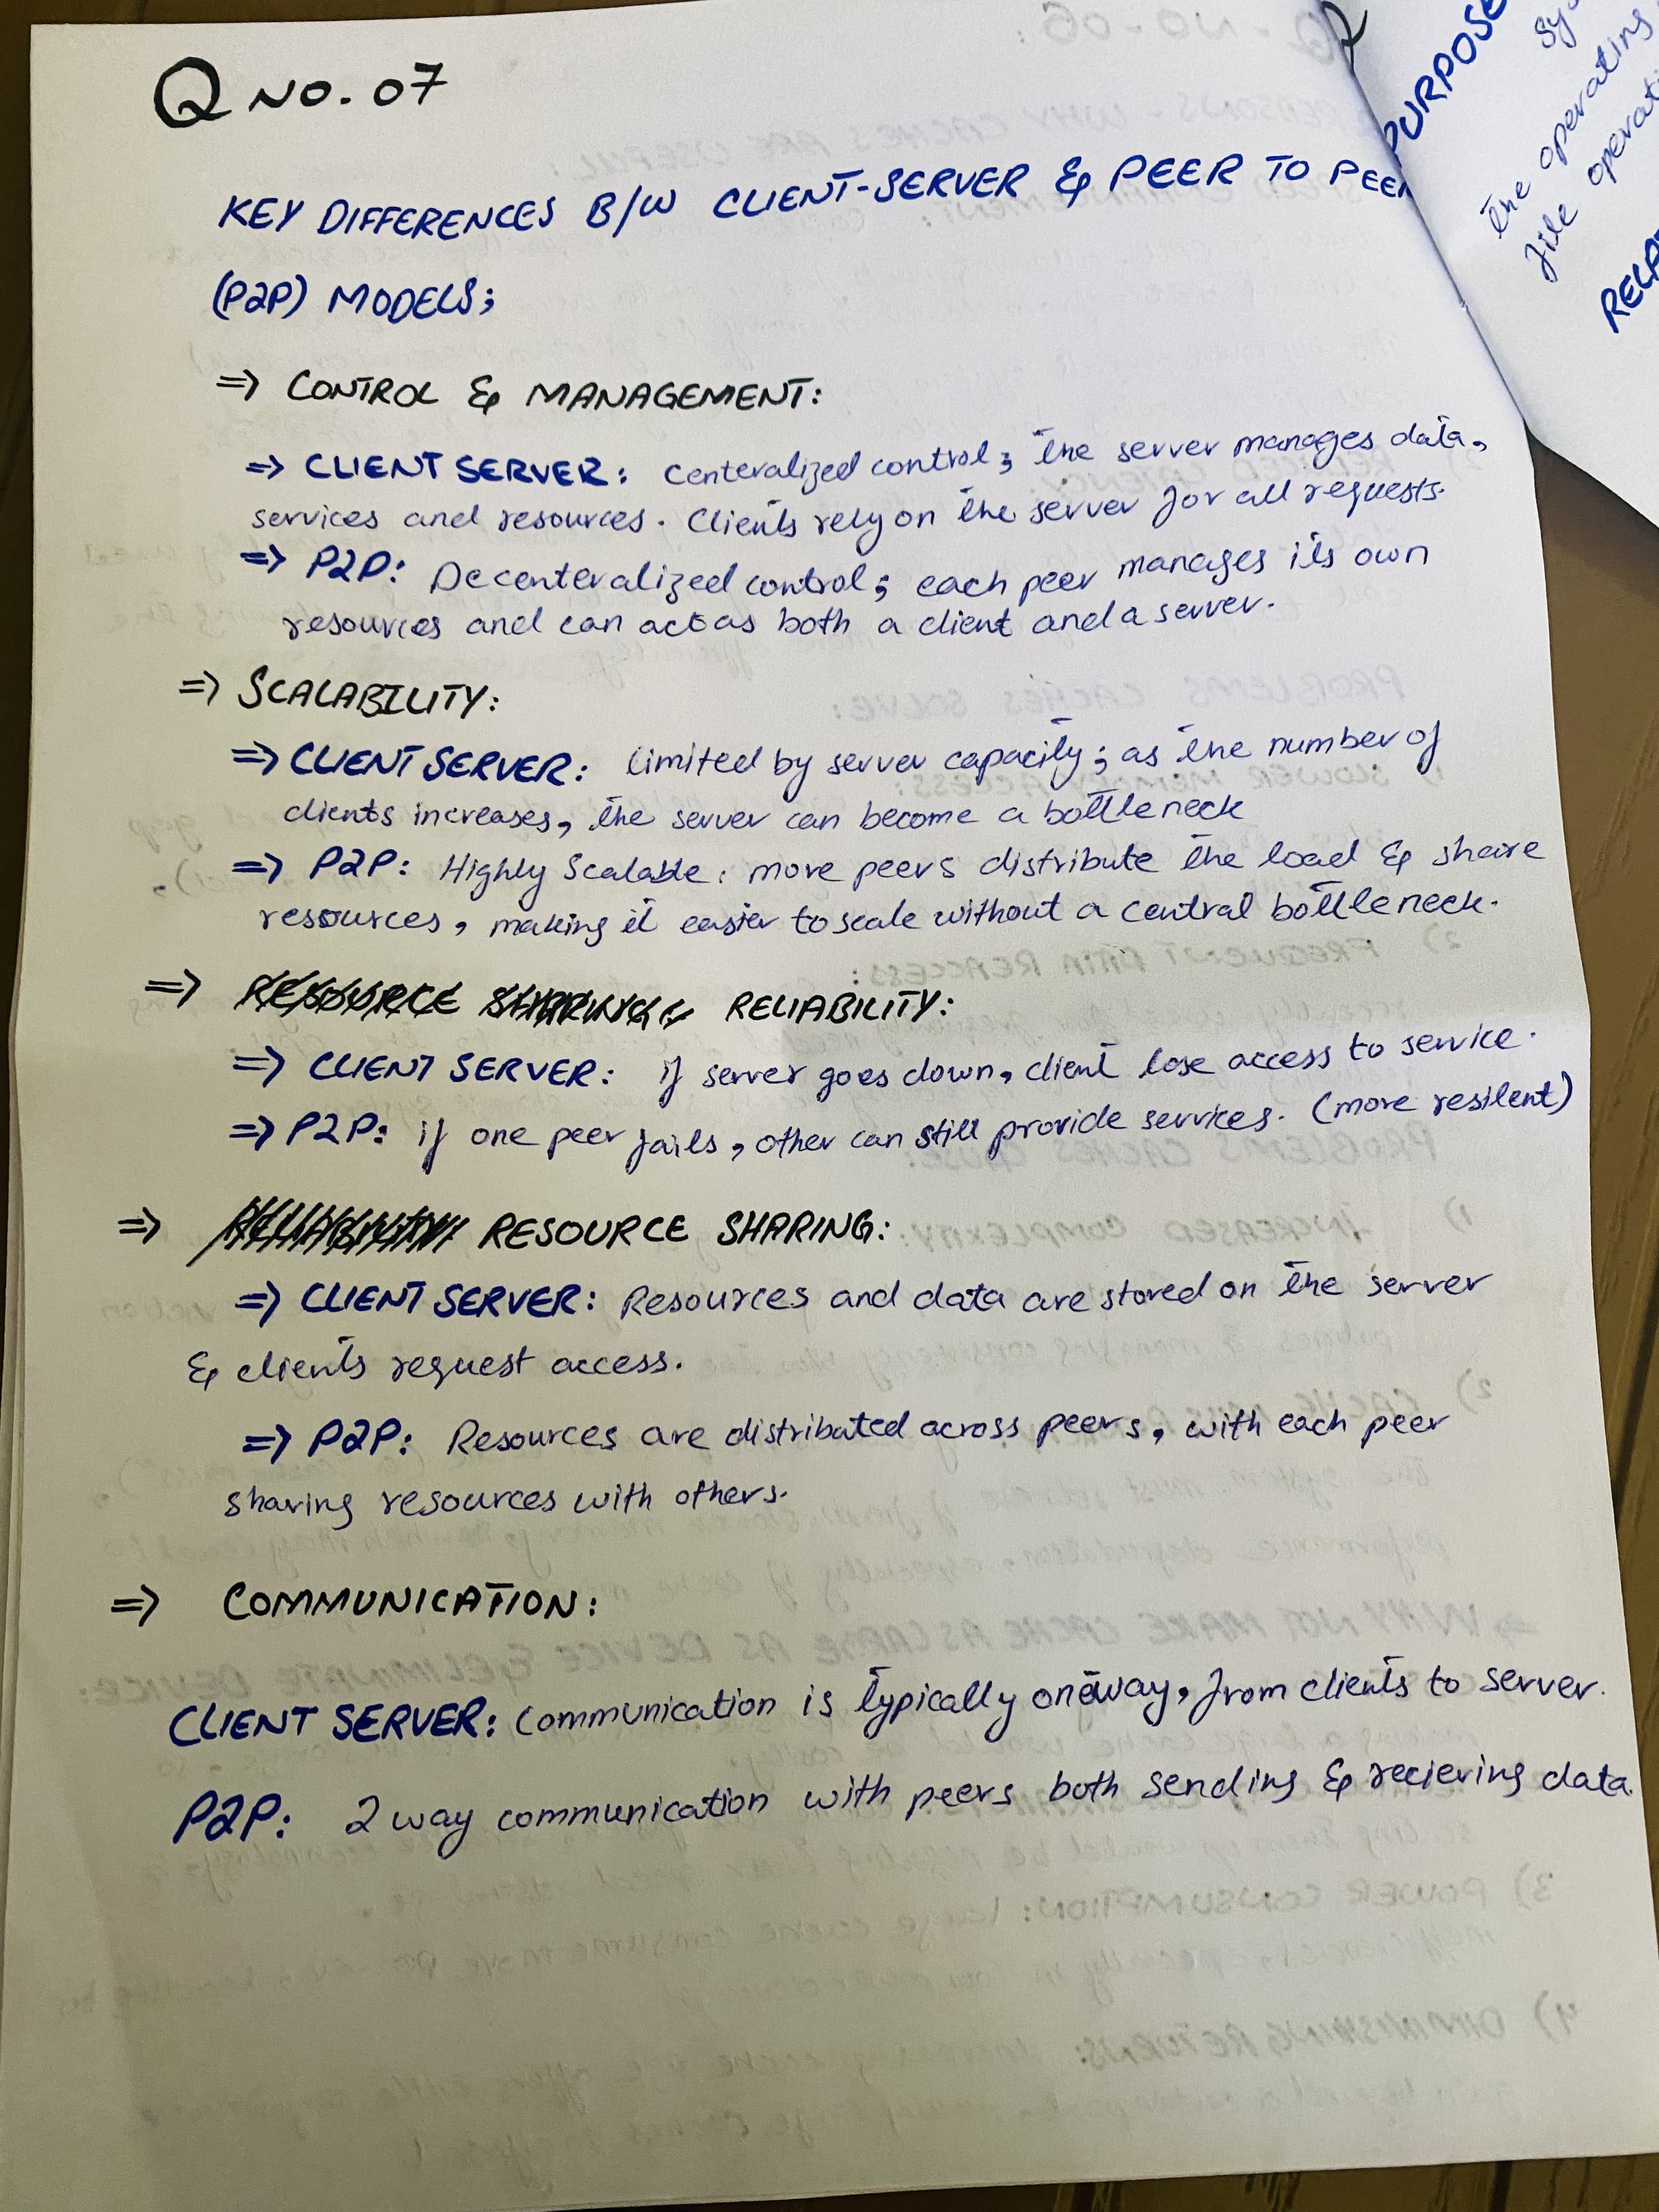 Q NO. 07
KEY DIFFERENCES B/W CLIENT-SERVER & PEER TO PEER
(P2P) MODELS;
=> CONTROL & MANAGEMENT:
=> CLIENT SERVER: Centeralized control; the server manages data,
services and resources. Clients rely on the server for all requests.
=> P2P: Decenteralized control; each peer manages its own
resources and can act as both a client and a server.
=> SCALABILITY:
=> CLIENT SERVER: limited by server capacity; as the number of
clients increases, the server can become a bottleneck
=> P2P: Highly Scalable: more peers distribute the load & share
resources, making it easier to scale without a central bottleneck.
=> RESOURCE SHARING: RELIABILITY:
=> CLIENT SERVER: if server goes down, client lose access to service.
=> P2P: if one peer fails, other can still provide services. (more resilent)
=> RELIABILITY RESOURCE SHARING:
=> CLIENT SERVER: Resources and data are stored on the server
& clients request access.
=> P2P: Resources are distributed across peers, with each peer
sharing resources with others.
=> COMMUNICATION:
CLIENT SERVER: Communication is typically oneway, from clients to server.
P2P: 2 way communication with peers both sending & recieving data.
PURPOSE
the operating
file operati
RELA